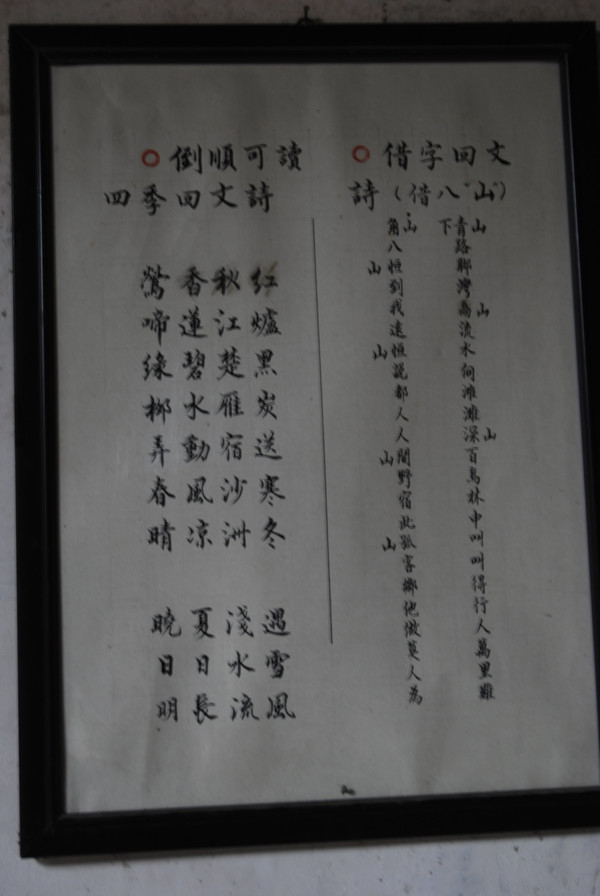 借字回文
詩(借八“山”)
山
下青路聯灣高流水向滩滩深百鳥林中叫叫得行人萬里難
山
山
山
角八恒到我遠恒說都人人間野宿此孤客鄉他做莫人為
山
山
山
山
倒順可讀
四季回文詩
鶯啼綠柳弄春晴 曉日明
香蓮碧水動風涼 夏日長
秋江楚雁宿沙洲 淺水流
紅爐黑炭送寒冬 遇雪風